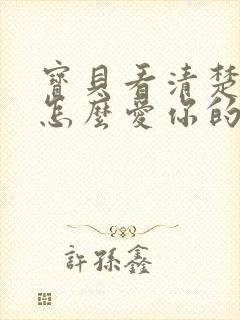 寶貝看清楚
怎麼愛你的
許孫鑫